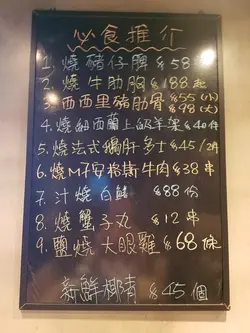 必食推介
1. 燒豬仔脾 $58
2. 燒牛肋胸 $188起
3. 西西里豬肋骨 $55 (小) $98 (大)
4. 燒紐西蘭上級羊架 $40件
5. 燒法式鵝肝多士 $45/2件
6. 燒M7安格斯牛肉 $38串
7. 汁燒白鱔 $88份
8. 燒蟹子丸 $12串
9. 鹽燒大眼雞 $68條
新鮮椰青 $45個